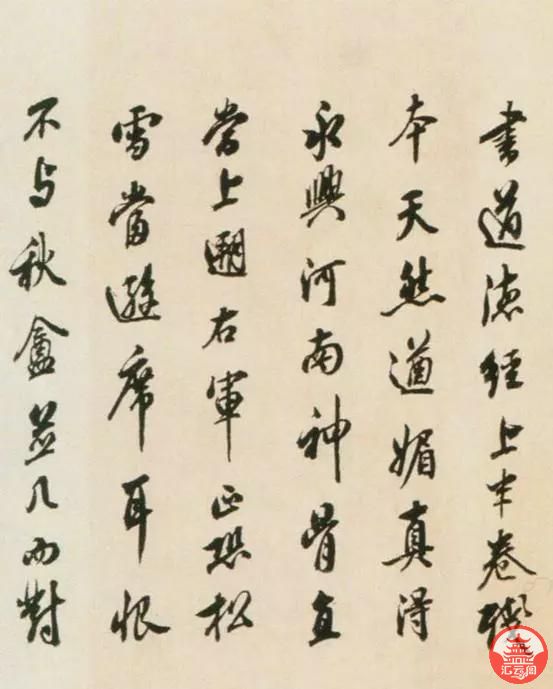 書道德經上半卷機
本天然遒媚真得
永興河南神骨直
當上遡右軍正恐松
雪當避席耳恨
不与秋盦並几而對
汇云阁